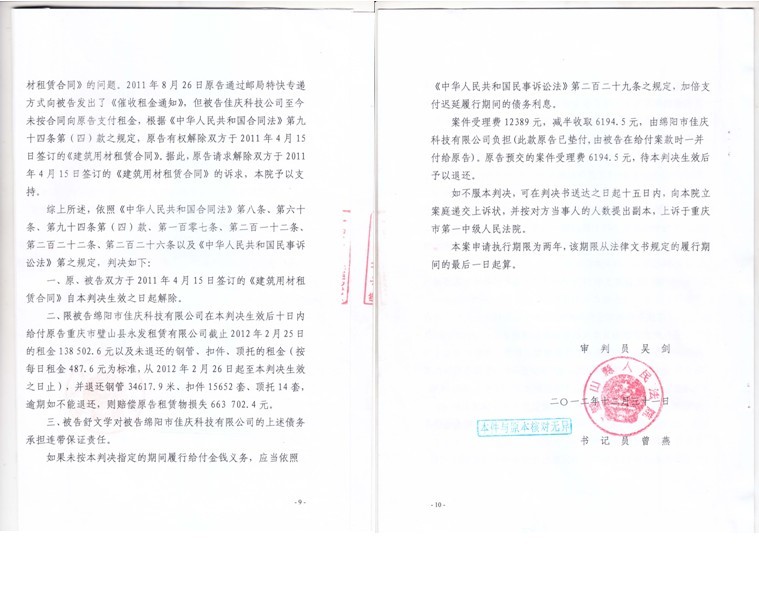 材租赁合同》的问题。2011年8月26日原告通过邮局特快专递
方式向被告发出了《催收租金通知》，但被告佳庆科技公司至今
未按合同向原告支付租金，根据《中华人民共和国合同法》第九
十四条第（四）款之规定，原告有权解除双方于2011年4月15
日签订的《建筑用材租赁合同》。据此，原告请求解除双方于2011
年4月15日签订的《建筑用材租赁合同》的诉求，本院予以支
持。
综上所述，依照《中华人民共和国合同法》第八条、第六十
条、第九十四条第（四）款、第一百零七条、第二百一十二条、
第二百二十二条、第二百二十六条以及《中华人民共和国民事诉
讼法》第之规定，判决如下：
一、原、被告双方于2011年4月15日签订的《建筑用材租
赁合同》自本判决生效之日起解除。
二、限被告绵阳市佳庆科技有限公司在本判决生效后十日内
给付原告重庆市璧山县永发租赁有限公司截止2012年2月25日
的租金138502.6元以及未退还的钢管、扣件、顶托的租金（按
每日租金487.6元为标准，从2012年2月26日起至本判决生效
之日止），并退还钢管34617.9米、扣件15652套、顶托14套，
逾期如不能退还，则赔偿原告租赁物损失663 702.4元。
三、被告舒文学对被告绵阳市佳庆科技有限公司的上述债务
承担连带保证责任。
如果未按本判决指定的期间履行给付金钱义务，应当依照
- 9 -
《中华人民共和国民事诉讼法》第二百二十九条之规定，加倍支
付迟延履行期间的债务利息。
案件受理费12389元，减半收取6194.5元，由绵阳市佳庆
科技有限公司负担（此款原告已垫付，由被告在给付案款时一并
付给原告）。原告预交的案件受理费6194.5元，待本判决生效后
予以退还。
如不服本判决，可在判决书送达之日起十五日内，向本院立
案庭递交上诉状，并按对方当事人的人数提出副本，上诉于重庆
市第一中级人民法院。
本案申请执行期限为两年，该期限从法律文书规定的履行期
间的最后一日起算。
审 判 员 吴 剑
山县人民法院
二〇一二年十二月三十一日
本件与原本核对无异
书 记 员 曾 燕
- 10 -